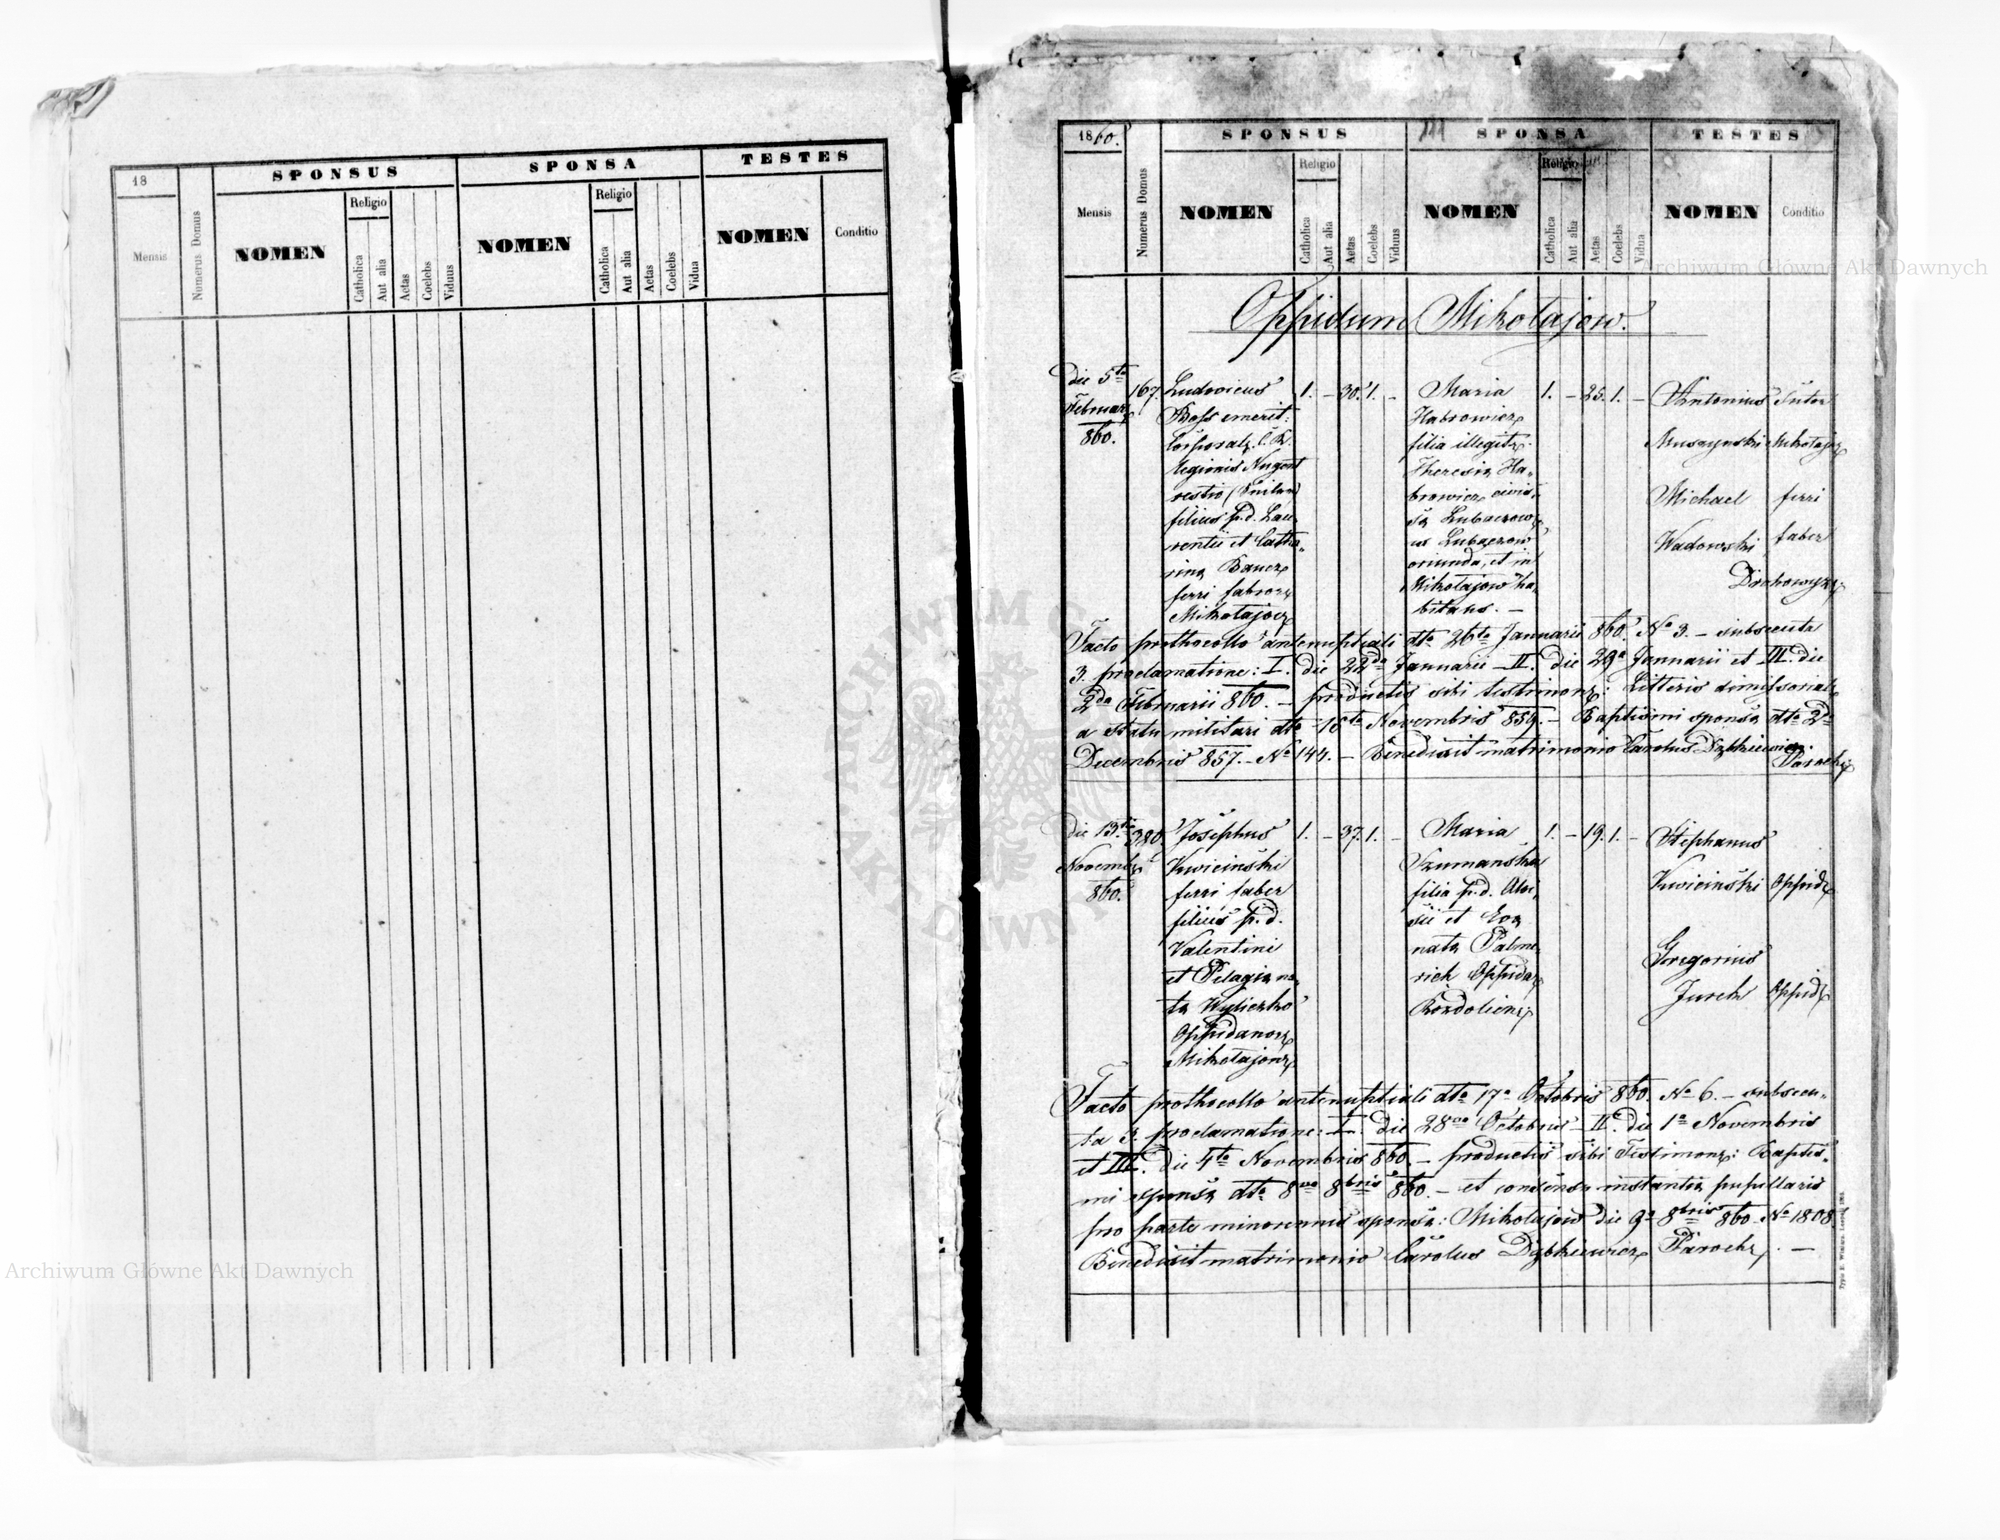 18
SPONSUS
SPONSA
TESTES
Mensis
Numerus Domus
NOMEN
Religio
Catholica
Aut alia
Aetas
Coelebs
Viduus
NOMEN
Religio
Catholica
Aut alia
Aetas
Coelebs
Vidua
NOMEN
Conditio
1860.
SPONSUS
SPONSA
TESTES
Mensis
Numerus Domus
NOMEN
Religio
Catholica
Aut alia
Aetas
Coelebs
Viduus
NOMEN
Religio
Catholica
Aut alia
Aetas
Coelebs
Vidua
NOMEN
Conditio
Oppidum Mikołajow.
die 5ta
Februar
860.
167.
Ludovicus
emerit:
C. R.
Legionis Nugent
filius p.d. Lau-
rentii et Catha-
rina Bauer
ferri fabror
Mikołajow
1. – 30. 1. –
Maria
Habrowicz
filia illegit:
Theresia Ha-
browicz civis
Lubaczow
Lubaczow
oriunda, et in
Mikołajow ha-
bitans. –
1. – 25. 1. –
Antonius Sutor
Muszynski Mikołajow
Michael ferri
Wadowski faber
Drohowyz
Facto prothocollo antenuptiali dto 26ta Januarii 860. No 3. – subsecuta
3. proclamatione: I. die 22da Januarii – II. die 29a Januarii et III. die
2da Februarii 860. – productis sibi testimon: Litteris dimissorial
a statu militari dto 16ta Novembris 859. – Baptismi sponsa dto 2da
Decembris 857. – No 144. – Benedixit matrimonio Carolus Dzbkiewicz
Paroch
die 13ta
Novemb
860.
380
Josephus
Kwicinski
ferri faber
filius p.d.
Valentini
et Pelagia na-
ta Wyliczko
Oppidanor
Mikołajow
1. – 37. 1. –
Maria
Szumanska
filia p.d. Aloi-
sii et Eva
nata Palme-
rich Oppidan
Rozdoliens
1. – 19. 1. –
Stephanus
Kwicinski Oppid
Gregorius
Jurek Oppid
Facto prothocollo antenuptiali dto 17a Octobris 860. No 6. – subsecu-
ta 3. proclamatione: I. die 28va Octobris – II. die 1a Novembris
et III. die 4ta Novembris 860. – productis sibi Testimon: Baptis-
mi sponsa dto 8va 8bris 860. – et consensu instantia pupillaris
pro parte minorennis sponsa: Mikołajow die 9a 8bris 860. No 1808
Benedixit matrimonio Carolus Dzbkiewicz Paroch. –
Archiwum Główne Akt Dawnych
Archiwum Główne Akt Dawnych